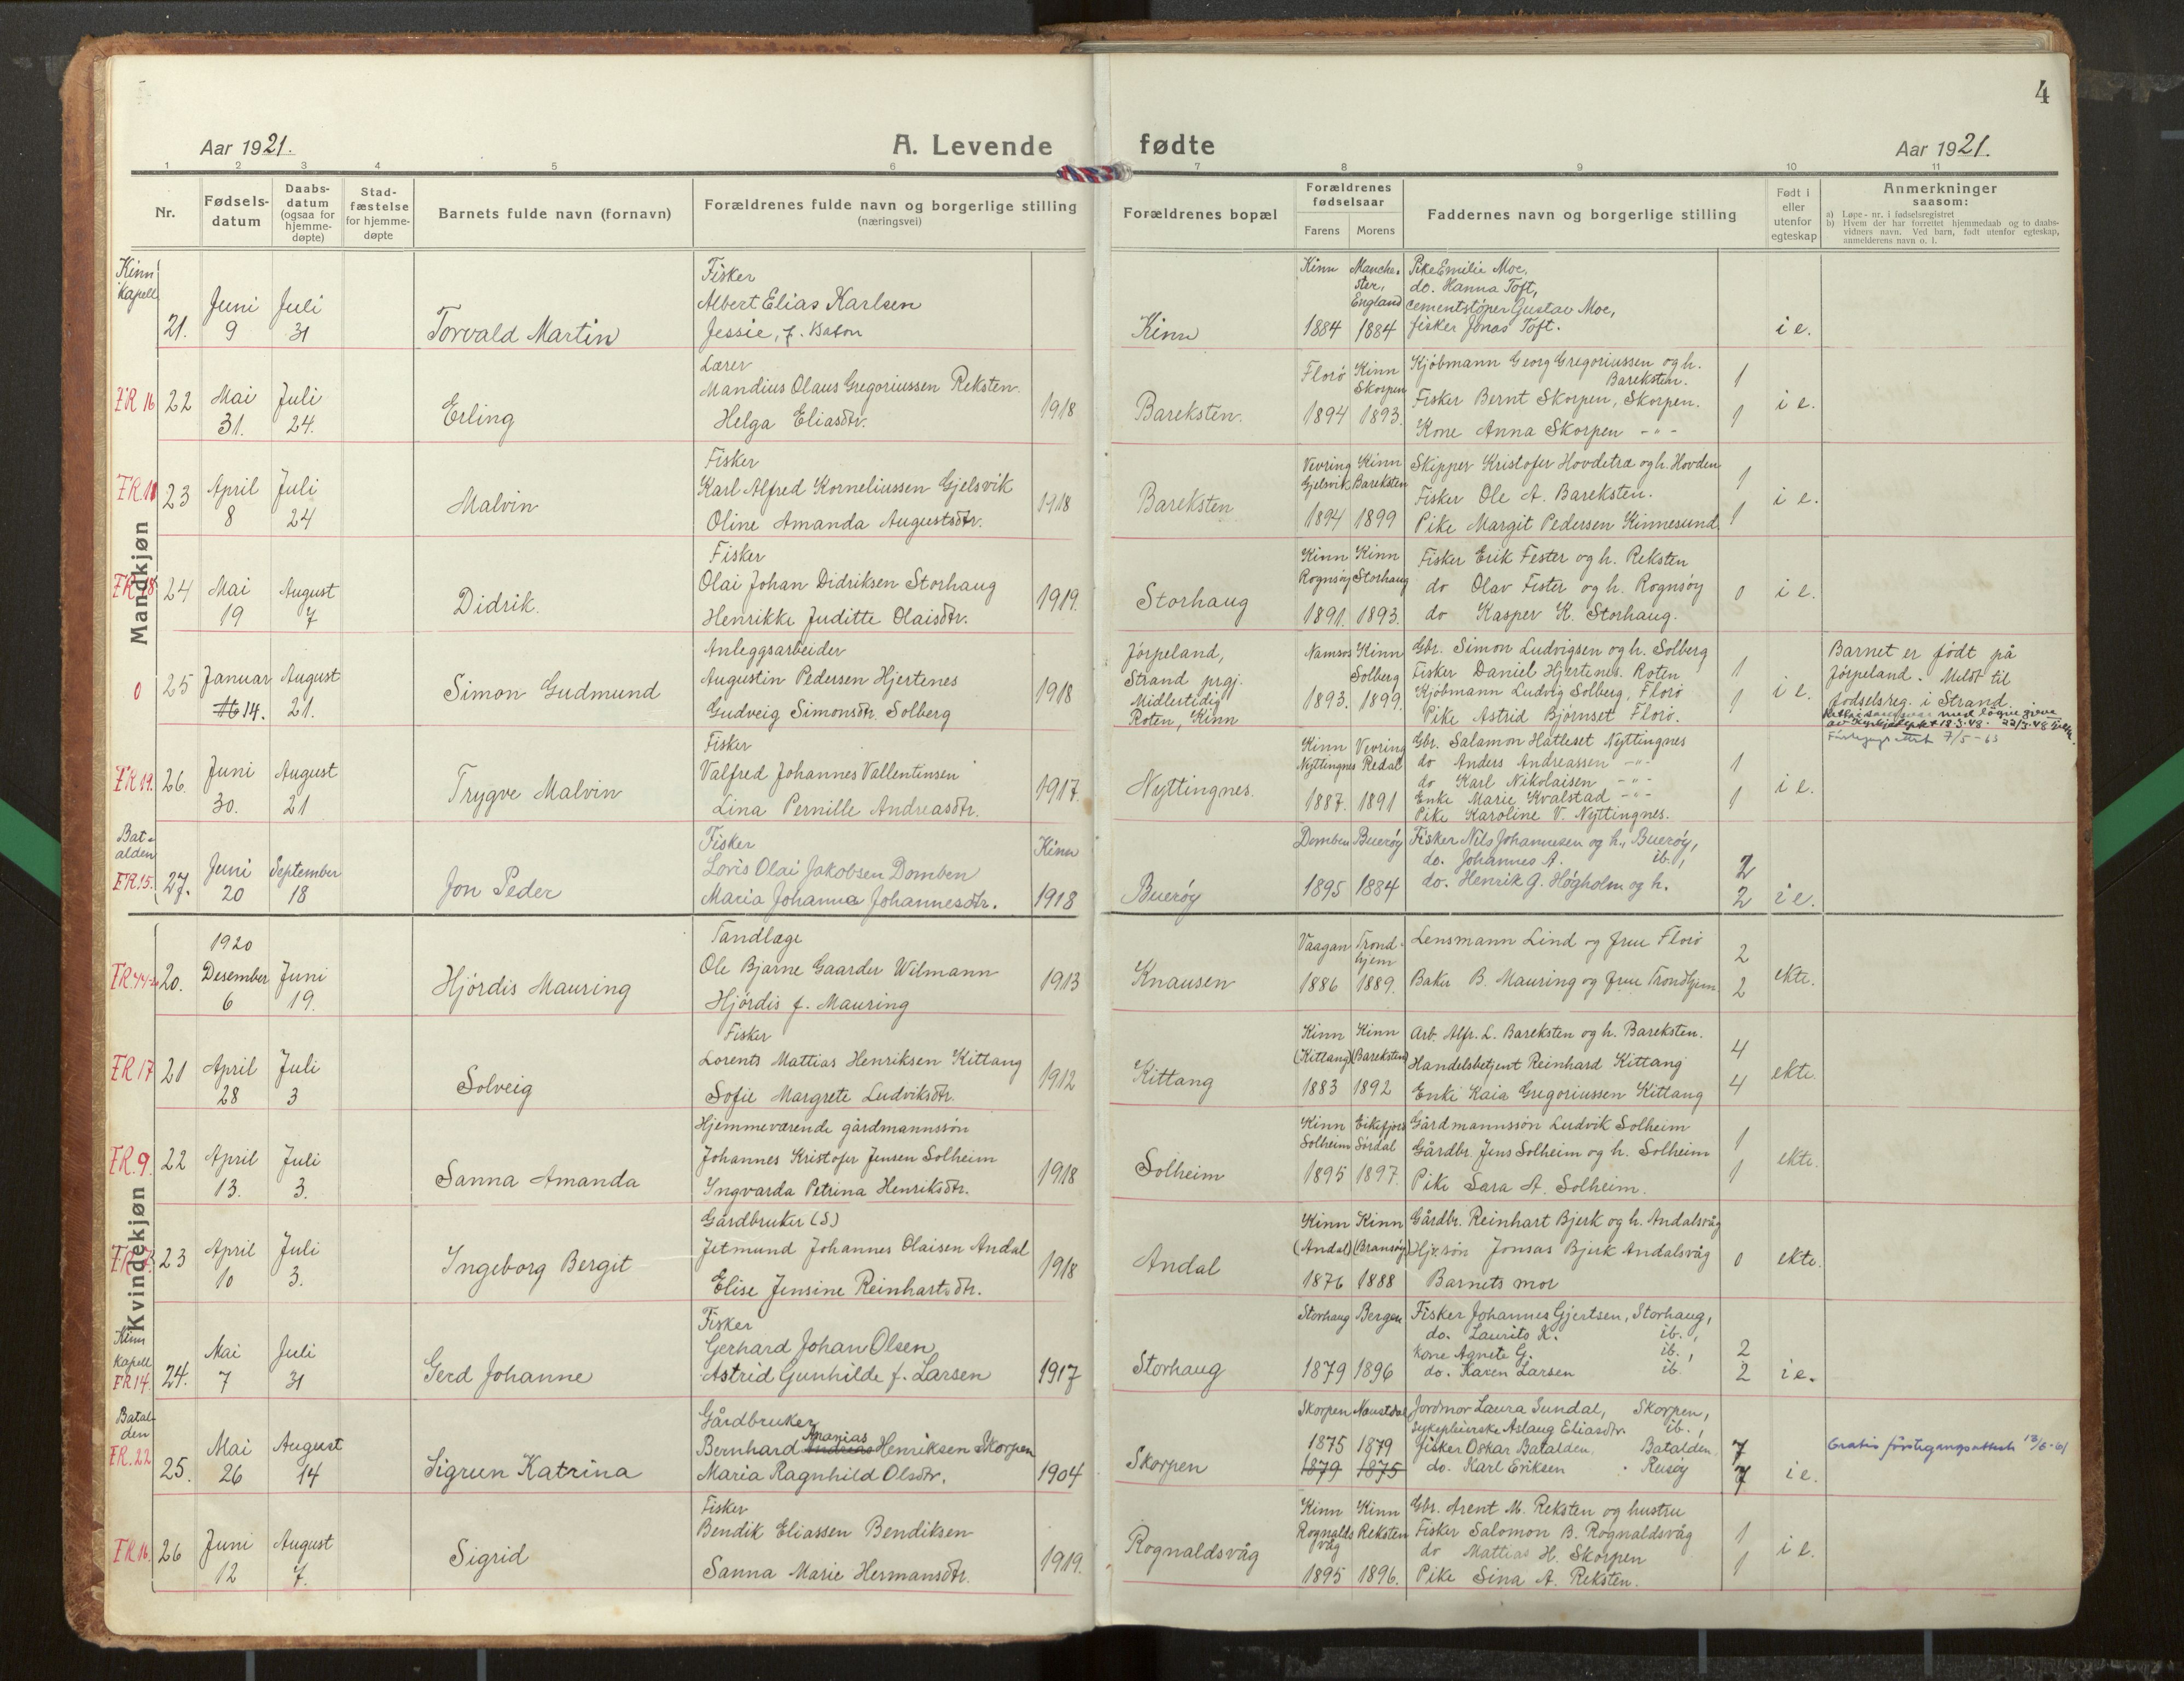 4
Aar 1921.
A. Levende fødte
Aar 1921.
1 2 3 4 5 6 7 8 9 10 11
Nr.
Fødsels-
datum
Daabs-
datum
(ogsaa for
hjemme-
døpte)
Stad-
fæstelse
for hjemme-
døpte
Barnets fulde navn (fornavn)
Forældrenes fulde navn og borgerlige stilling
(næringsvei)
Forældrenes bopæl
Forældrenes
fødselsaar
Farens Morens
Faddernes navn og borgerlige stilling
Født i
eller
utenfor
egteskap
Anmerkninger
saasom:
a) Løpe-nr. i fødselsregistret
b) Hvem der har forrettet hjemmedaab og to daabs-
vidners navn. Ved barn, født utenfor egteskap,
anmelderens navn o. l.
Mandkjøn
Kinn
Kapell
21.
Juni
9
Juli
31
Torvald Martin
Fisker
Albert Elias Karlsen
Jessie, f.
Kinn
Kinn
1884
Manche-
ster,
England
1884
Pike Emilie Moe,
do. Hanna Toft,
Cementstøper Gustav Moe,
fisker Jonas Toft.
i e.
FR 16
22
Mai
31.
Juli
24.
Erling
Lærer
Mandius Olaus Gregoriussen Reksten
Helga Eliasdtr.
1918
Bareksten.
Florø
1894
Kinn
Skorpen
1893.
Kjøbmann Georg Gregoriussen og h.
Bareksten.
Fisker Bernt Skorpen, Skorpen.
Kone Anna Skorpen -"-
1
1
i e.
FR
23
April
8
Juli
24
Malvin
Fisker
Karl Alfred Korneliussen Gjelsvik
Oline Amanda Augustsdtr.
1918
Bareksten
Vevring
Gjelsvik
1894
Kinn
Bareksten
1899
Skipper Kristofer Hovdetræ og h. Hovden
Fisker Ole A. Bareksten.
Pike Margit Pedersen Kinnesund
1
1
i e.
FR 18
24
Mai
19
August
7
Didrik.
Fisker
Olai Johan Didriksen Storhaug
Henrikke Juditte Olaisdtr.
1919.
Storhaug
Kinn
Rognsøy
1891.
Kinn
Storhaug
1893.
Fisker Erik Fester og h. Reksten
do Olav Fister og h. Rognsøy
do Kasper K. Storhaug.
0
i e.
0
25
Januar
16 14.
August
21.
Simon Gudmund
Anleggsarbeider
Augustin Pedersen Hjertenes
Gudveig Simonsdtr. Solberg
1918
Jørpeland,
Strand prgj.
Midlertidig
Roten, Kinn
Namsos
1893.
Kinn
Solberg
1899.
Gbr. Simon Ludvigsen og h. Solberg
Fisker Daniel Hjertenes. Roten
Kjøbmann Ludvig Solberg, Florø
Pike Astrid Bjørnset Florø.
1
1
i e.
Barnet er født på
Jørpeland. Meldt til
fødselsreg. i Strand.
7/5-63
FR 19.
26.
Juni
30.
August
21
Trygve Malvin
Fisker
Valfred Johannes Vallentinsen
Lina Pernille Andreasdtr.
1917.
Nyttingnes.
Kinn
Nyttingnes
1887.
Vevring
Redal
1891
Gbr. Salamon Hatleset Nyttingnes
do Anders Andreassen -"-
do Karl Nikolaisen -"-
Enke Marie Kvalstad -"-
Pike Karoline V. Nyttingnes.
1
1
i e.
Bat-
alden
FR.15.
27.
Juni
20
September
18
Jon Peder
Fisker
Loris Olai Jakobsen Domben
Maria Johanna Johannesdtr.
Kinn
1918
Buerøy
Domben
1895
Buerøy
1884
Fisker Nils Johannesen og h., Buerøy,
do. Johannes A. ib.,
do. Henrik G. Høgholm og h.
2
2
i e.
Kvindekjøn
FR.44
20.
1920
Desember
6
Juni
19.
Hjørdis Mauring
Tandlæge
Ole Bjarne Gaarder Wilmann
Hjørdis f. Mauring
1913
Knausen
Vaagan
1886
Trond-
hjem
1889.
Lensmann Lind og frue Florø
Baker B. Mauring og frue Trondhjem.
2
2
ekte.
FR 17
21
April
28
Juli
3
Solveig
Fisker
Lorents Mattias Henriksen Kittang
Sofie Margrete Ludviksdtr.
1912
Kittang
Kinn
(Kittang)
1883
Kinn
(Bareksten)
1892
Arb. Alfr. L. Bareksten og h. Bareksten.
Handelsbetjent Reinhard Kittang
Enke Kaia Gregoriussen Kittang
4
4
ekte.
FR.9.
22
April
13.
Juli
3.
Sanna Amanda
Hjemmeværende gårdmannssøn
Johannes Kristofer Jensen Solheim
Ingvarda Petrina Henriksdtr.
1918
Solheim
Kinn
Solheim
1895
Eikefjord
Sørdal
1897.
Gårdmannssøn Ludvik Solheim
Gårdbr. Jens Solheim og h. Solheim
Pike Sara A. Solheim.
1
1
ekte.
23
April
10
Juli
3.
Ingeborg Bergit
Gårdbruker (S)
Jetmund Johannes Olaisen Andal
Elise Jensine Reinhartsdtr.
1918
Andal
Kinn
(Andal)
1876
Kinn
(Bransøy)
1888
Gårdbr. Reinhart Bjerk og h. Andalsvåg
Hj.v.søn Jonsas Bjerk Andalsvåg
Barnets mor
0
ekte.
Kinn
kapell
FR 14.
24.
Mai
7
Juli
31
Gerd Johanne
Fisker
Gerhard Johan Olsen
Astrid Gunhilde f. Larsen
1917
Storhaug
Storhaug
1879
Bergen
1896
Fisker Johannes Gjertsen, Storhaug,
do. Laurits K. ib.,
Kone Agnete G. ib.,
do. Karen Larsen ib.
2
2
i e.
Batal-
den
FR.22
25.
Mai
26
August
14
Sigrun Katrina
Gårdbruker
Ananias
Bernhard Andreas Henriksen Skorpen
Maria Ragnhild Olsdtr.
1904
Skorpen
Skorpen
1875
1879
Naustdal
1879
1875
Jordmor Laura Sundal, Skorpen,
Sykepleierske Aslaug Eliasdtr. ib.,
Fisker Oskar Batalden, Batalden.
do. Karl Eriksen Reisøy
7
7
i e.
Gratis førstegangsattest
FR 16.
26
Juni
12
August
7.
Sigrid
Fisker
Bendik Eliassen Bendiksen
Sanna Marie Hermansdtr.
1919.
Rognaldsvåg
Kinn
Rognalds
våg
1895
Kinn
Reksten
1896.
Gbr. Arent M. Reksten og hustru
Fisker Salomon B. Rognaldsvåg
do Mattias H. Skorpen
Pike Sina A. Reksten.
1
1
i e.